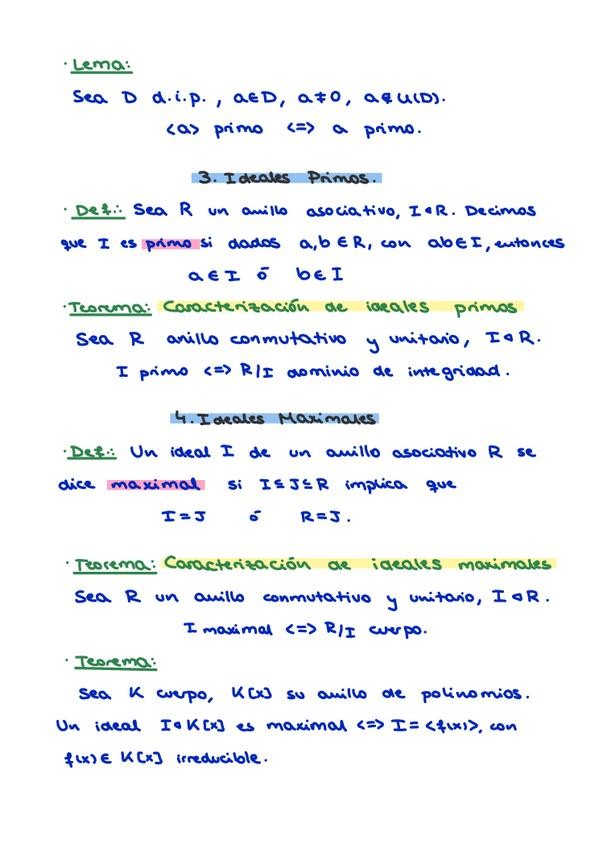 · Lema:
Sea D d.i.p., a∈D, a≠0, a∉U(D).
<a> primo <=> a primo.
3. Ideales Primos.
· Def.: Sea R un anillo asociativo, I◁R. Decimos
que I es primo si dados a,b ∈ R, con ab∈I, entonces
a∈I ó b∈I
· Teorema: Caracterización de ideales primos
Sea R anillo conmutativo y unitario, I◁R.
I primo <=> R/I dominio de integridad.
4. Ideales Maximales
· Def.: Un ideal I de un anillo asociativo R se
dice maximal si I⊆J⊆R implica que
I=J ó R=J.
· Teorema: Caracterización de ideales maximales
Sea R un anillo conmutativo y unitario, I◁R.
I maximal <=> R/I cuerpo.
· Teorema:
Sea K cuerpo, K[x] su anillo de polinomios.
Un ideal I◁K[x] es maximal <=> I=<f(x)>, con
f(x)∈K[x] irreducible.